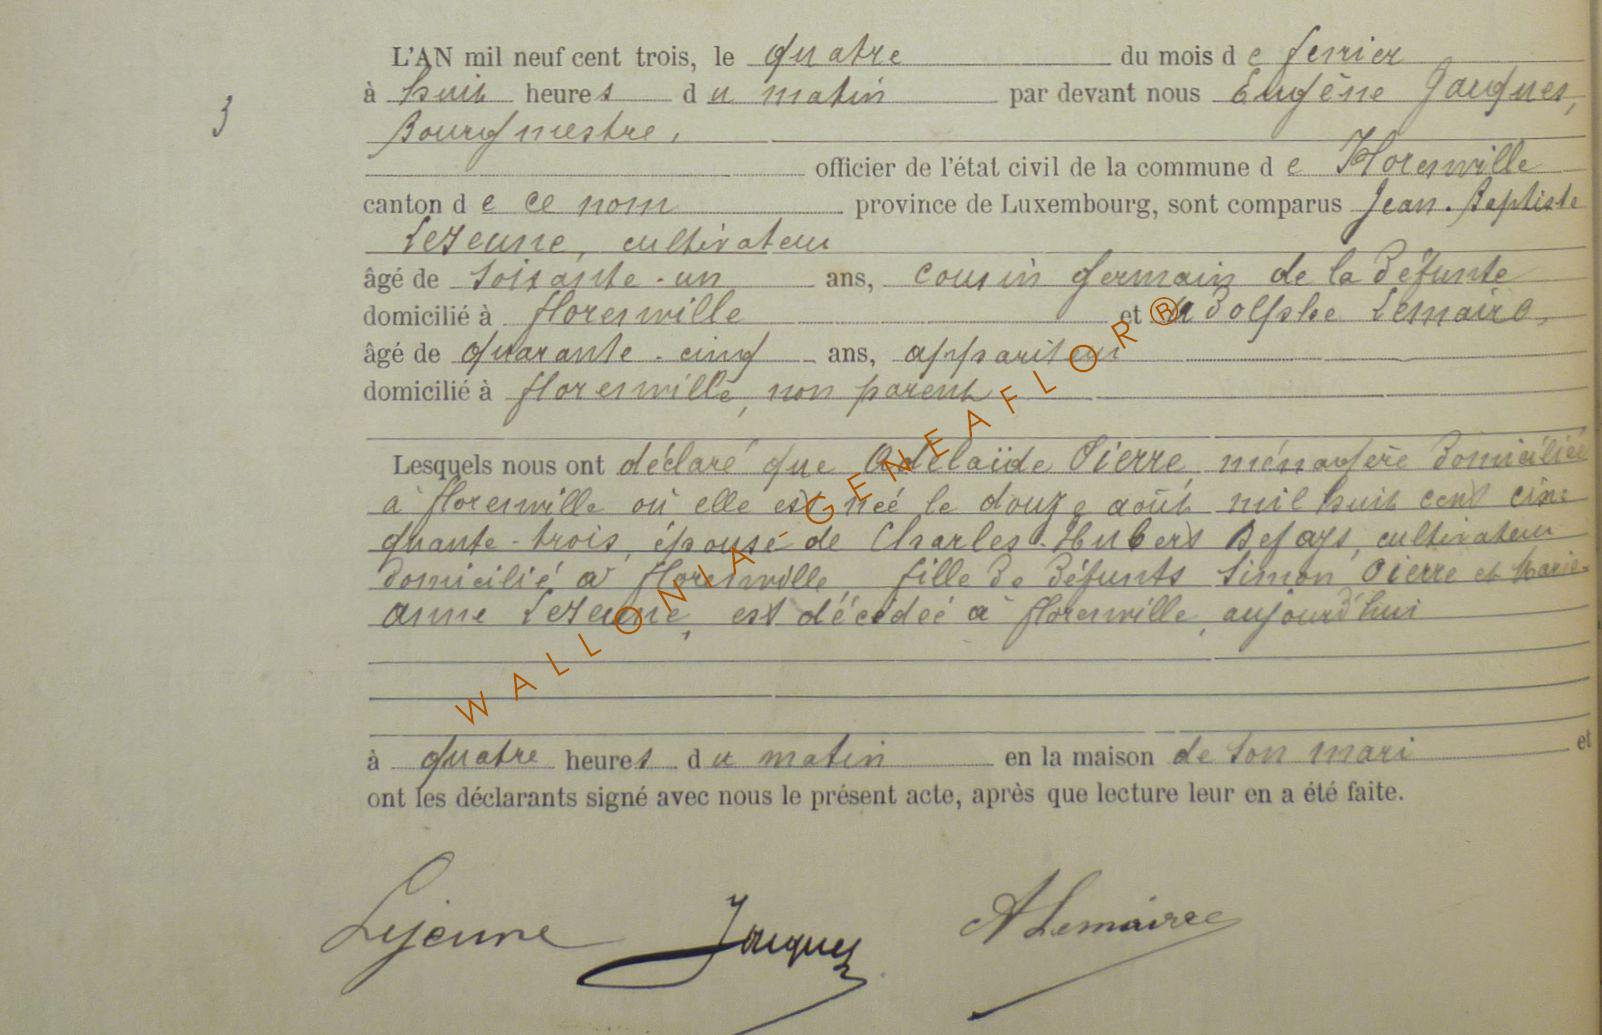 L'AN mil neuf cent trois, le quatre du mois de fevrier
3
à huit heures du matin par devant nous Eugène Jacques,
Bourgmestre,
officier de l'état civil de la commune de Florenville
canton de ce nom province de Luxembourg, sont comparus Jean-Baptiste
Lejeune, cultivateur
âgé de soixante-un ans, cousin germain de la défunte
domicilié à florenville et Adolphe Lemaire,
âgé de quarante-cinq ans, appariteur
domicilié à florenville, non parent
Lesquels nous ont déclaré que Adelaïde Pierre, ménagère domiciliée
à florenville où elle est née le douze août mil huit cent cin-
quante-trois, épouse de Charles-Hubert Defays, cultivateur
domicilié à florenville fille de défunts Simon Pierre et Marie-
Anne Lejeune, est décédée à florenville, aujourd'hui
à quatre heures du matin en la maison de son mari et
ont les déclarants signé avec nous le présent acte, après que lecture leur en a été faite.
Lejeune Jacques A Lemaire
WALLONIA-GENEAFLOR®